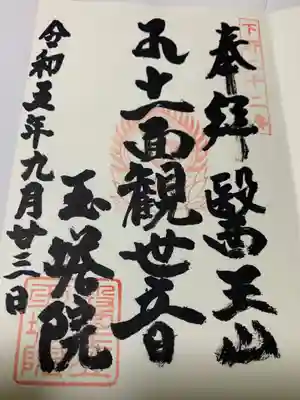 奉拝 醫王山
十一面観世音
玉塔院
令和五年九月廿三日